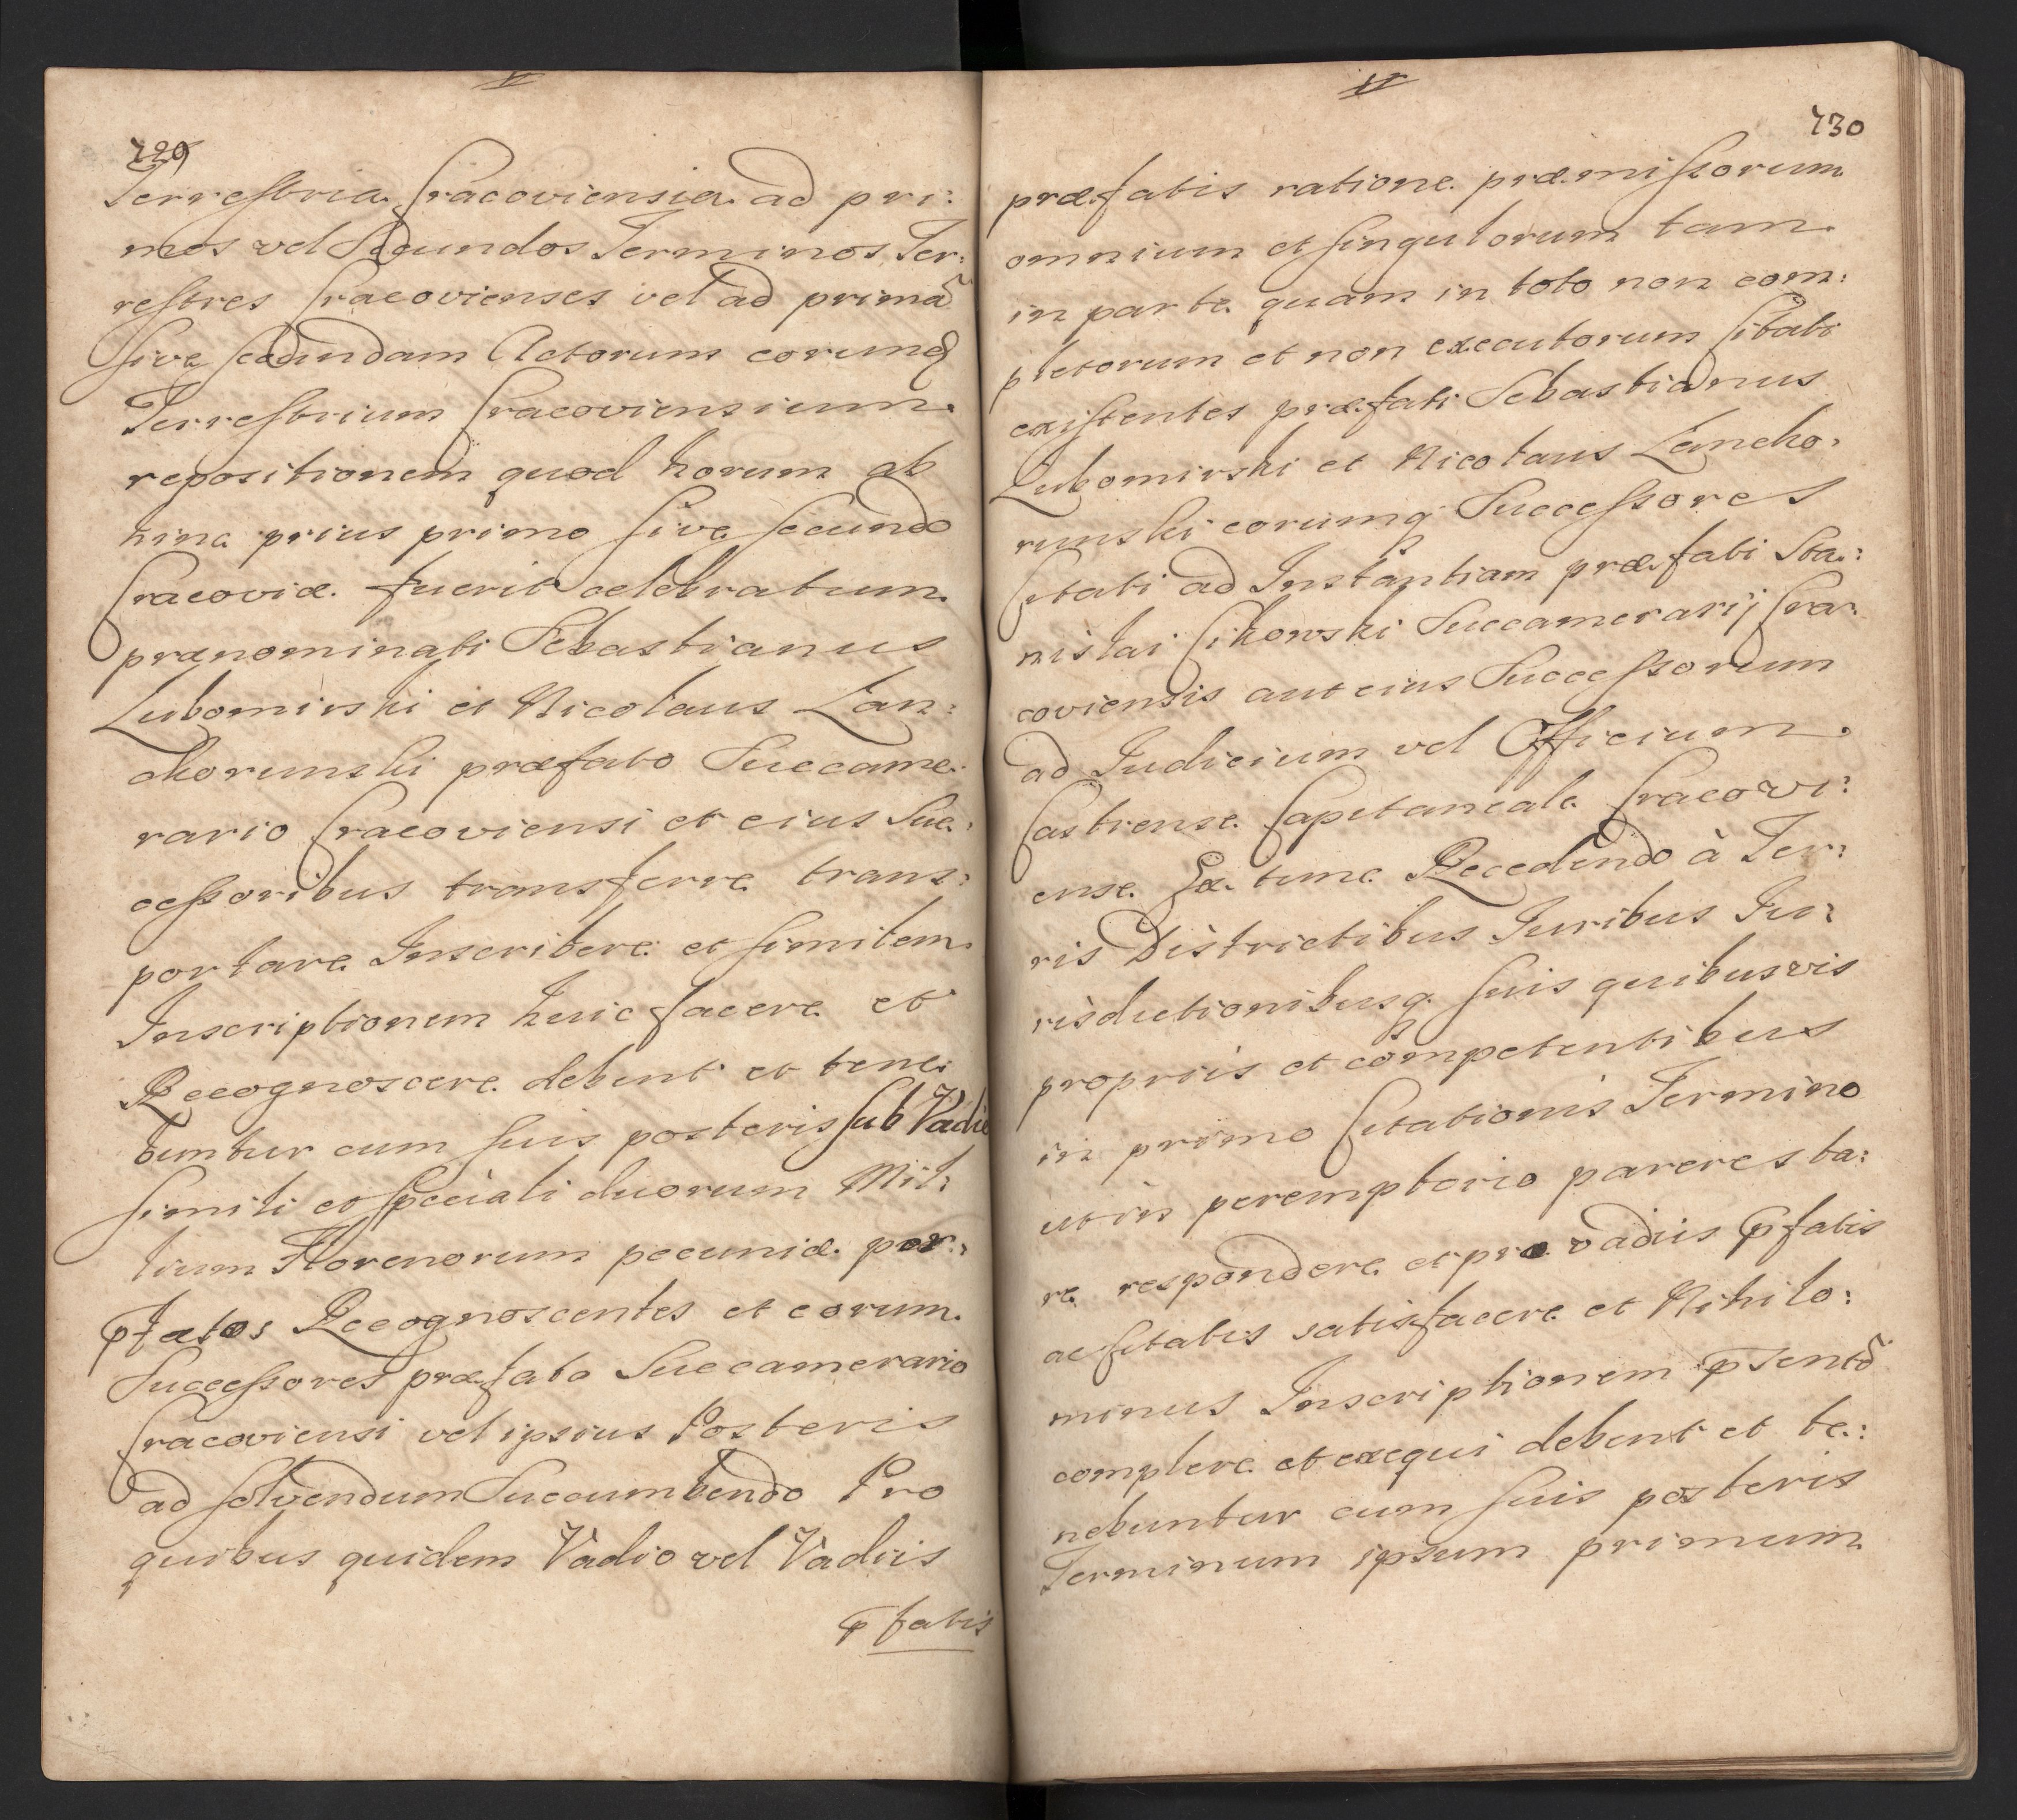 729
Terrestria Cracoviensia ad pri:
mos vel Secundos Terminos Ter:
restres Cracovienses vel ad primã
sive secundam Actorum eorumq
Terrestrium Cracoviensium
repositionem quod horum ab
hinc prius primo sive secundo
Cracoviæ fuerit celebratum
prænominati Sebastianus
Lubomirski et Nicolaus Lan:
ckorunski præfato Succame:
rario Cracoviensi et eius Suc:
cessoribus transferre trans:
portare Inscribere et similem
Inscriptionem huic facere et
Recognoscere debent et tene:
buntur cum suis posteris sub Vadio
simili et speciali duorum Mil:
lium Florenorum pecuniæ per
pfatos Recognoscentes et eorum
Successores præfato Succamerario
Cracoviensi vel ipsius Posteris
ad solvendum Succumbendo Pro
quibus quidem Vadio vel Vadiis
pfatis
730
præfatis ratione præmissorum
omnium et singulorum tam
in parte quam in toto non com:
pletorum et non executorum Citati
existentes præfati Sebastianus
Lubomirski et Nicolaus Lancko:
runski eorumq Successores
Citati ad Instantiam præfati Sta:
nislai Cikowski Succamerarij Cra:
coviensis aut eius Successorum
ad Iudicium vel Officium
Castrense Capitaneale Cracovi:
ense Ex tunc Recedendo à Ter:
ris Districtibus Iuribus Iu:
risdictionibusq suis quibusvis
propriis et competentibus
in primo Citationis Termino
utvis peremptorio parere sta:
re respondere et pro vadiis pfatis
ac Citatis satisfacere et Nihilo:
minus Inscriptionem psentẽ
complere et exequi debent et te:
nebuntur cum suis posteris
Terminum ipsum primum